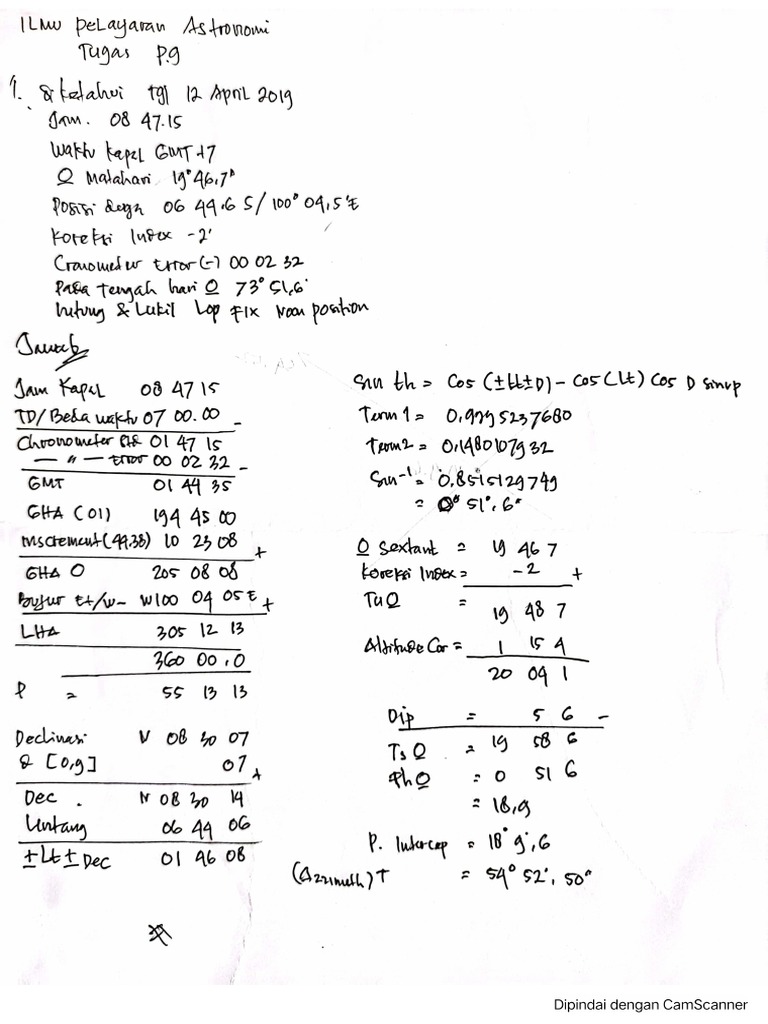 ILMU PELAYARAN ASTRONOMI
Tugas P.g
1. diketahui tgl 12 APRIL 2019
Jam. 08 47.15
Waktu Kapal GMT +7
O Matahari 19° 46,7"
Posisi duga 06 44.6 S/ 100° 04,5'E
Koreksi Index -2'
Cronometer Error (-) 00 02 32
Pada Tengah hari O 73° 51,6'
hitung & Lukil Lop FIX Noon position
Jawab
Jam Kapal 08 47 15
TD/Beda waktu 07 00.00 -
Chronometer 01 47 15
— " — Error 00 02 32 -
GMT 01 44 35
GHA (01) 194 45 00
Inscrement (44.33) 10 23 08 +
GHA O 205 08 08
Bujur Et/W- W100 04 05 E +
LHA 305 12 13
360 00 ,0
P = 55 13 13
Declinasi N 08 30 07
d [0,9] 07 +
Dec . N 08 30 14
Lintang 06 44 06
±Lt ± Dec 01 46 08
Sin th = Cos (±Lt±D) - Cos (Lt) Cos D sinvp
Term 1 = 0,9995237680
Term 2 = 0,1480107932
Sin⁻¹ = 0,8515129749
= 0° 51',6"
O Sextant = 19 46 7
Koreksi Index = -2 +
Tu O = 19 48 7
Altitude Cor = 1 15 4
20 04 1
Dip = 5 6 -
Ts O = 19 58 6
Ph O = 0 51 6
= 18,9
P. Intercap = 18° 9',6
(Azzimuth) T = 54° 52', 50"
Dipindai dengan CamScanner